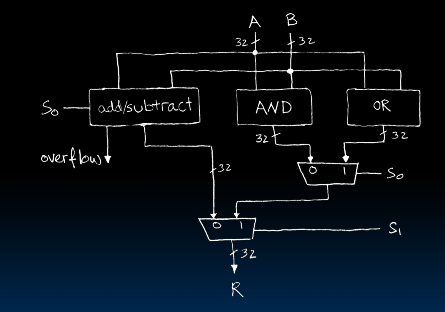 A B
32 32
S₀ add/subtract AND OR
overflow 32 32
0 1 S₀
32
0 1 S₁
32
R